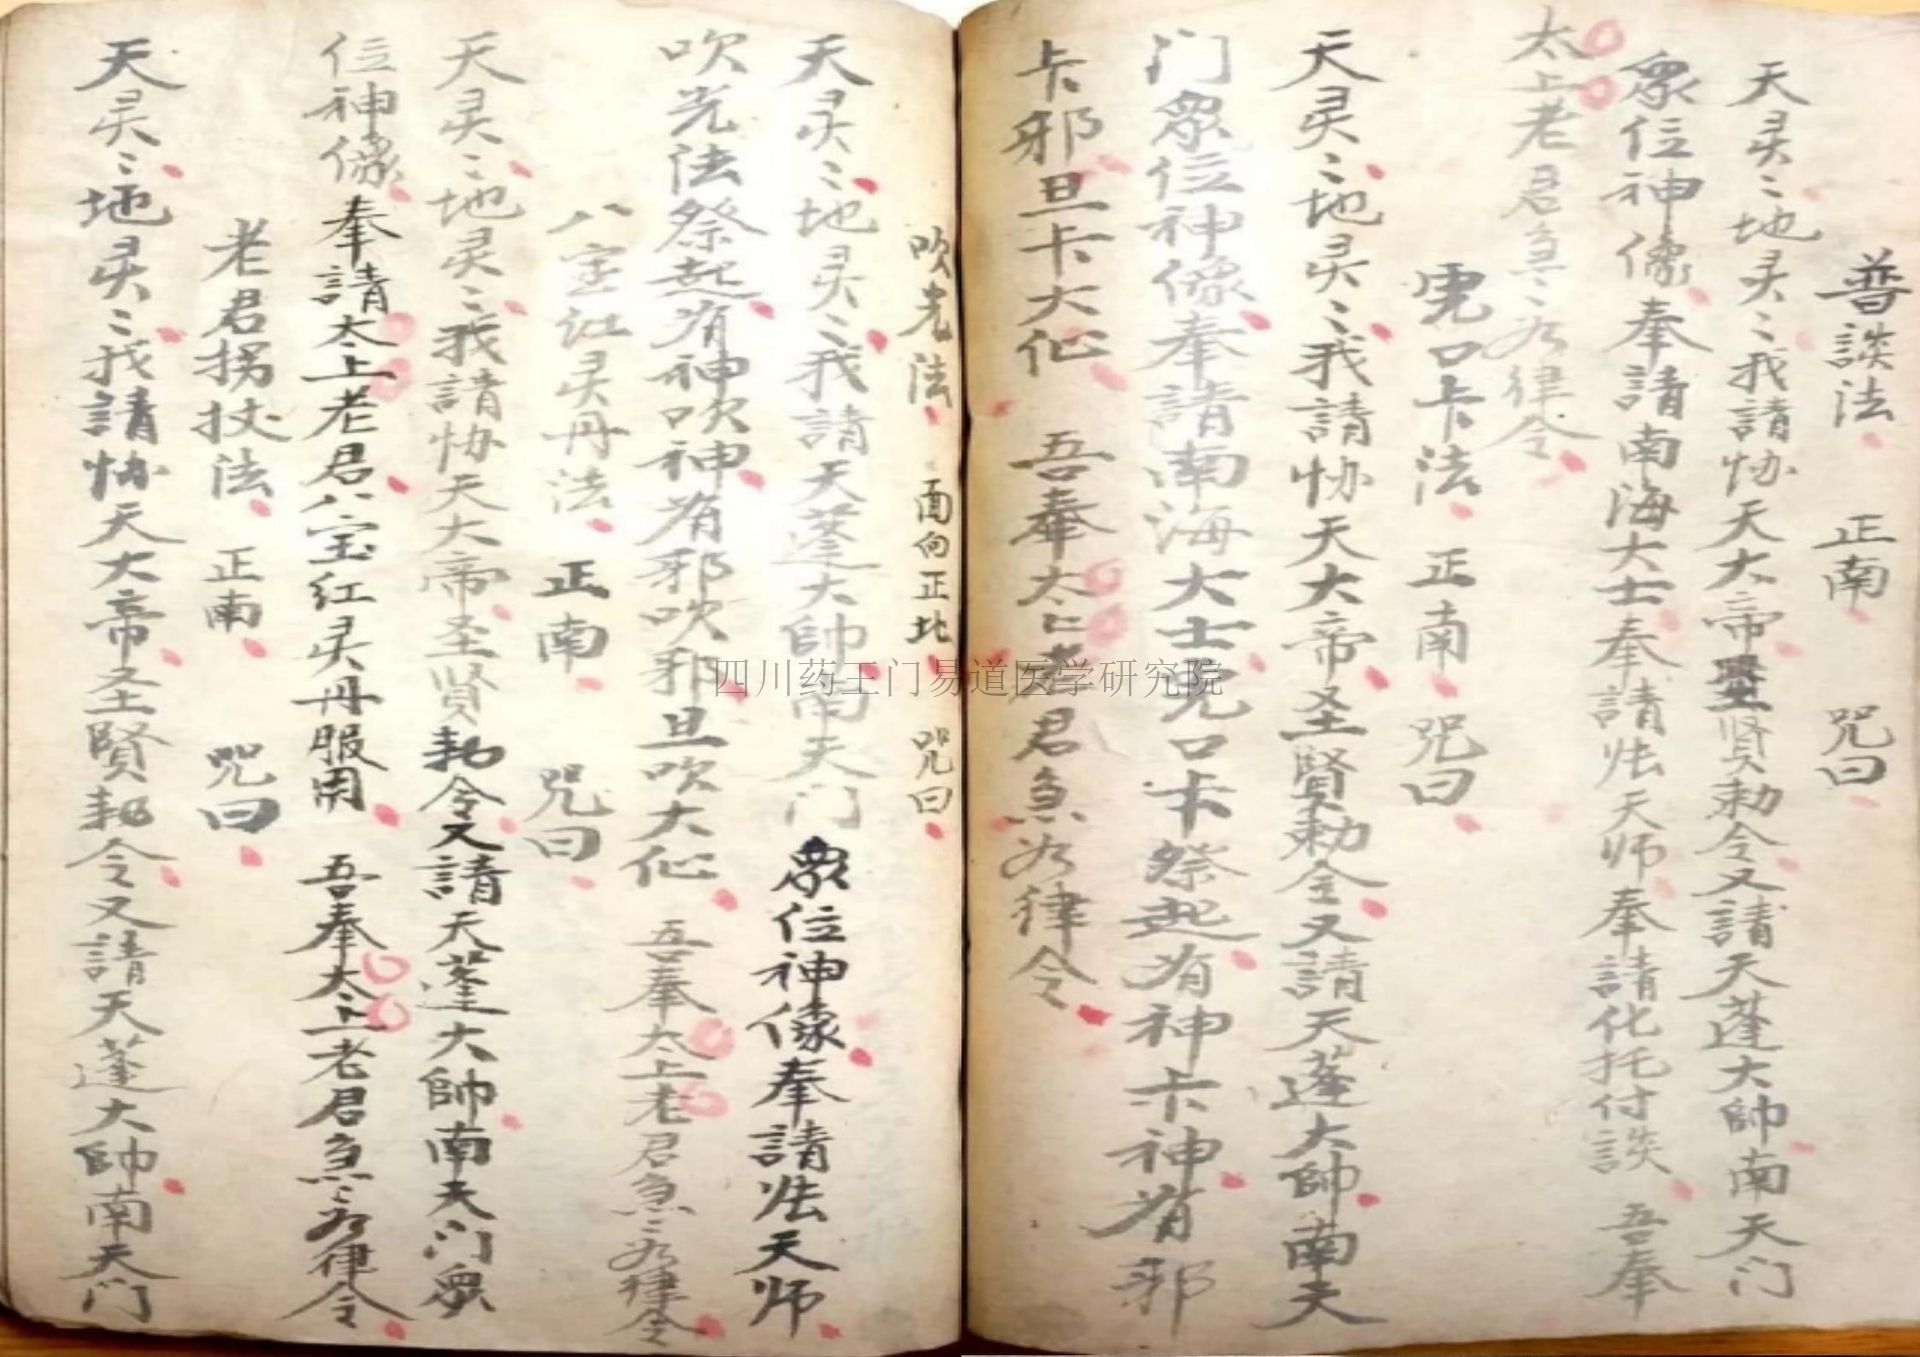 普談法 正南 咒曰
天灵〻地灵〻我請协天大帝聖賢勅令又請天蓬大帥南天门
衆位神像奉請南海大士奉請张天师奉請化托付談 吾奉
太上老君急〻如律令
口卡法 正南 咒曰
天灵〻地灵〻我請协天大帝圣賢勅令又請天蓬大帥南天
门衆位神像奉請南海大士 口卡祭起有神卡神有邪
卡邪旦卡大化 吾奉太上老君急如律令
吹老法 面向正北 咒曰
天灵〻地灵〻我請天蓬大帥南天门衆位神像奉請张天师
吹光法祭起有神吹神有邪吹邪旦吹大化 吾奉太上老君急〻如律令
八宝红灵丹法 正南 咒曰
天灵〻地灵〻我請协天大帝圣贤勅令又請天蓬大帥南天门衆
位神像奉請太上老君八宝红灵丹服用 吾奉太上老君急〻如律令
老君拐杖法 正南 咒曰
天灵〻地灵〻我請协天大帝圣賢勅令又請天蓬大帥南天门
四川药王门易道医学研究院